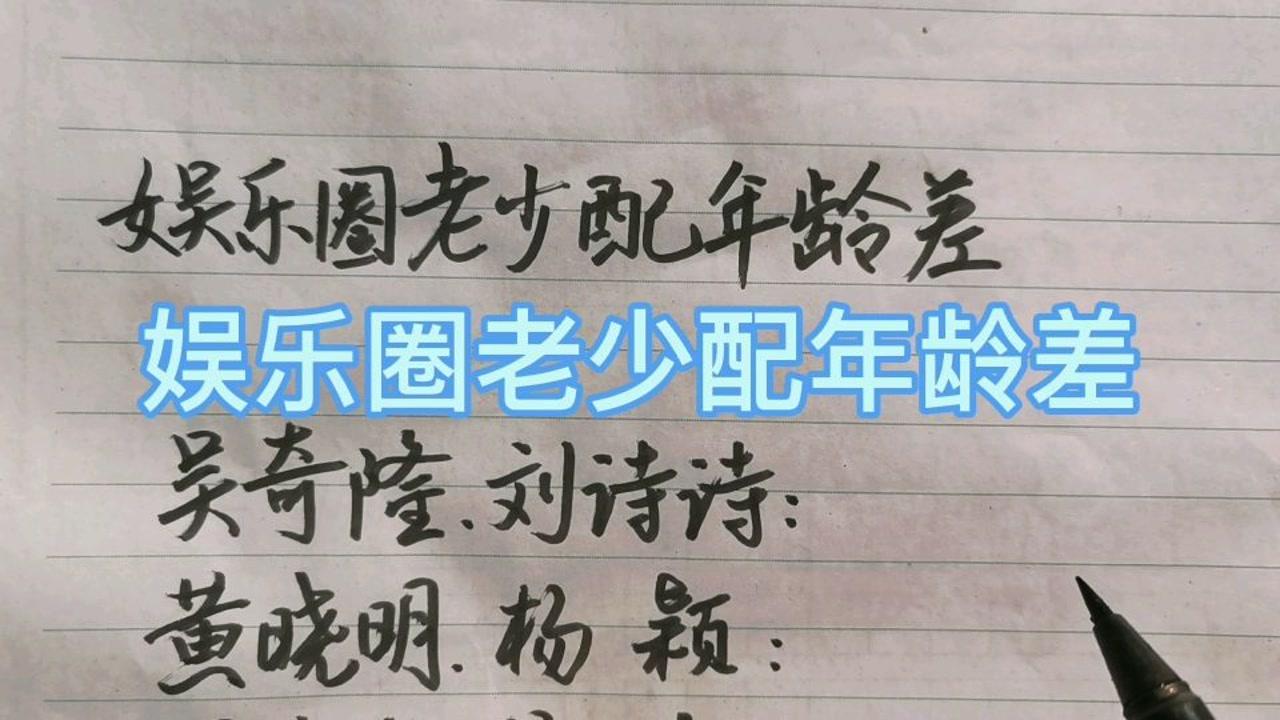 娱乐圈老少配年龄差
娱乐圈老少配年龄差
吴奇隆.刘诗诗:
黄晓明.杨颖: